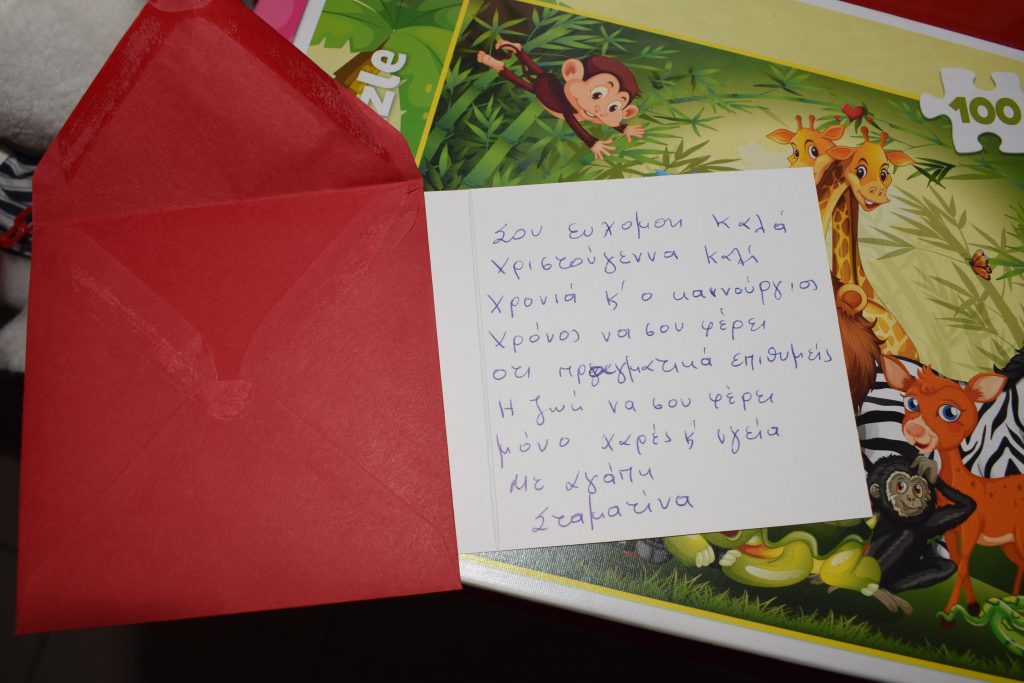 zle
100
Σου ευχομαι καλά
Χριστούγεννα καλή
χρονιά κ' ο καινούργιος
χρόνος να σου φέρει
οτι πραγματικά επιθυμείς
Η ζωή να σου φέρει
μόνο χαρές κ' υγεία
με αγάπη
Σταματίνα